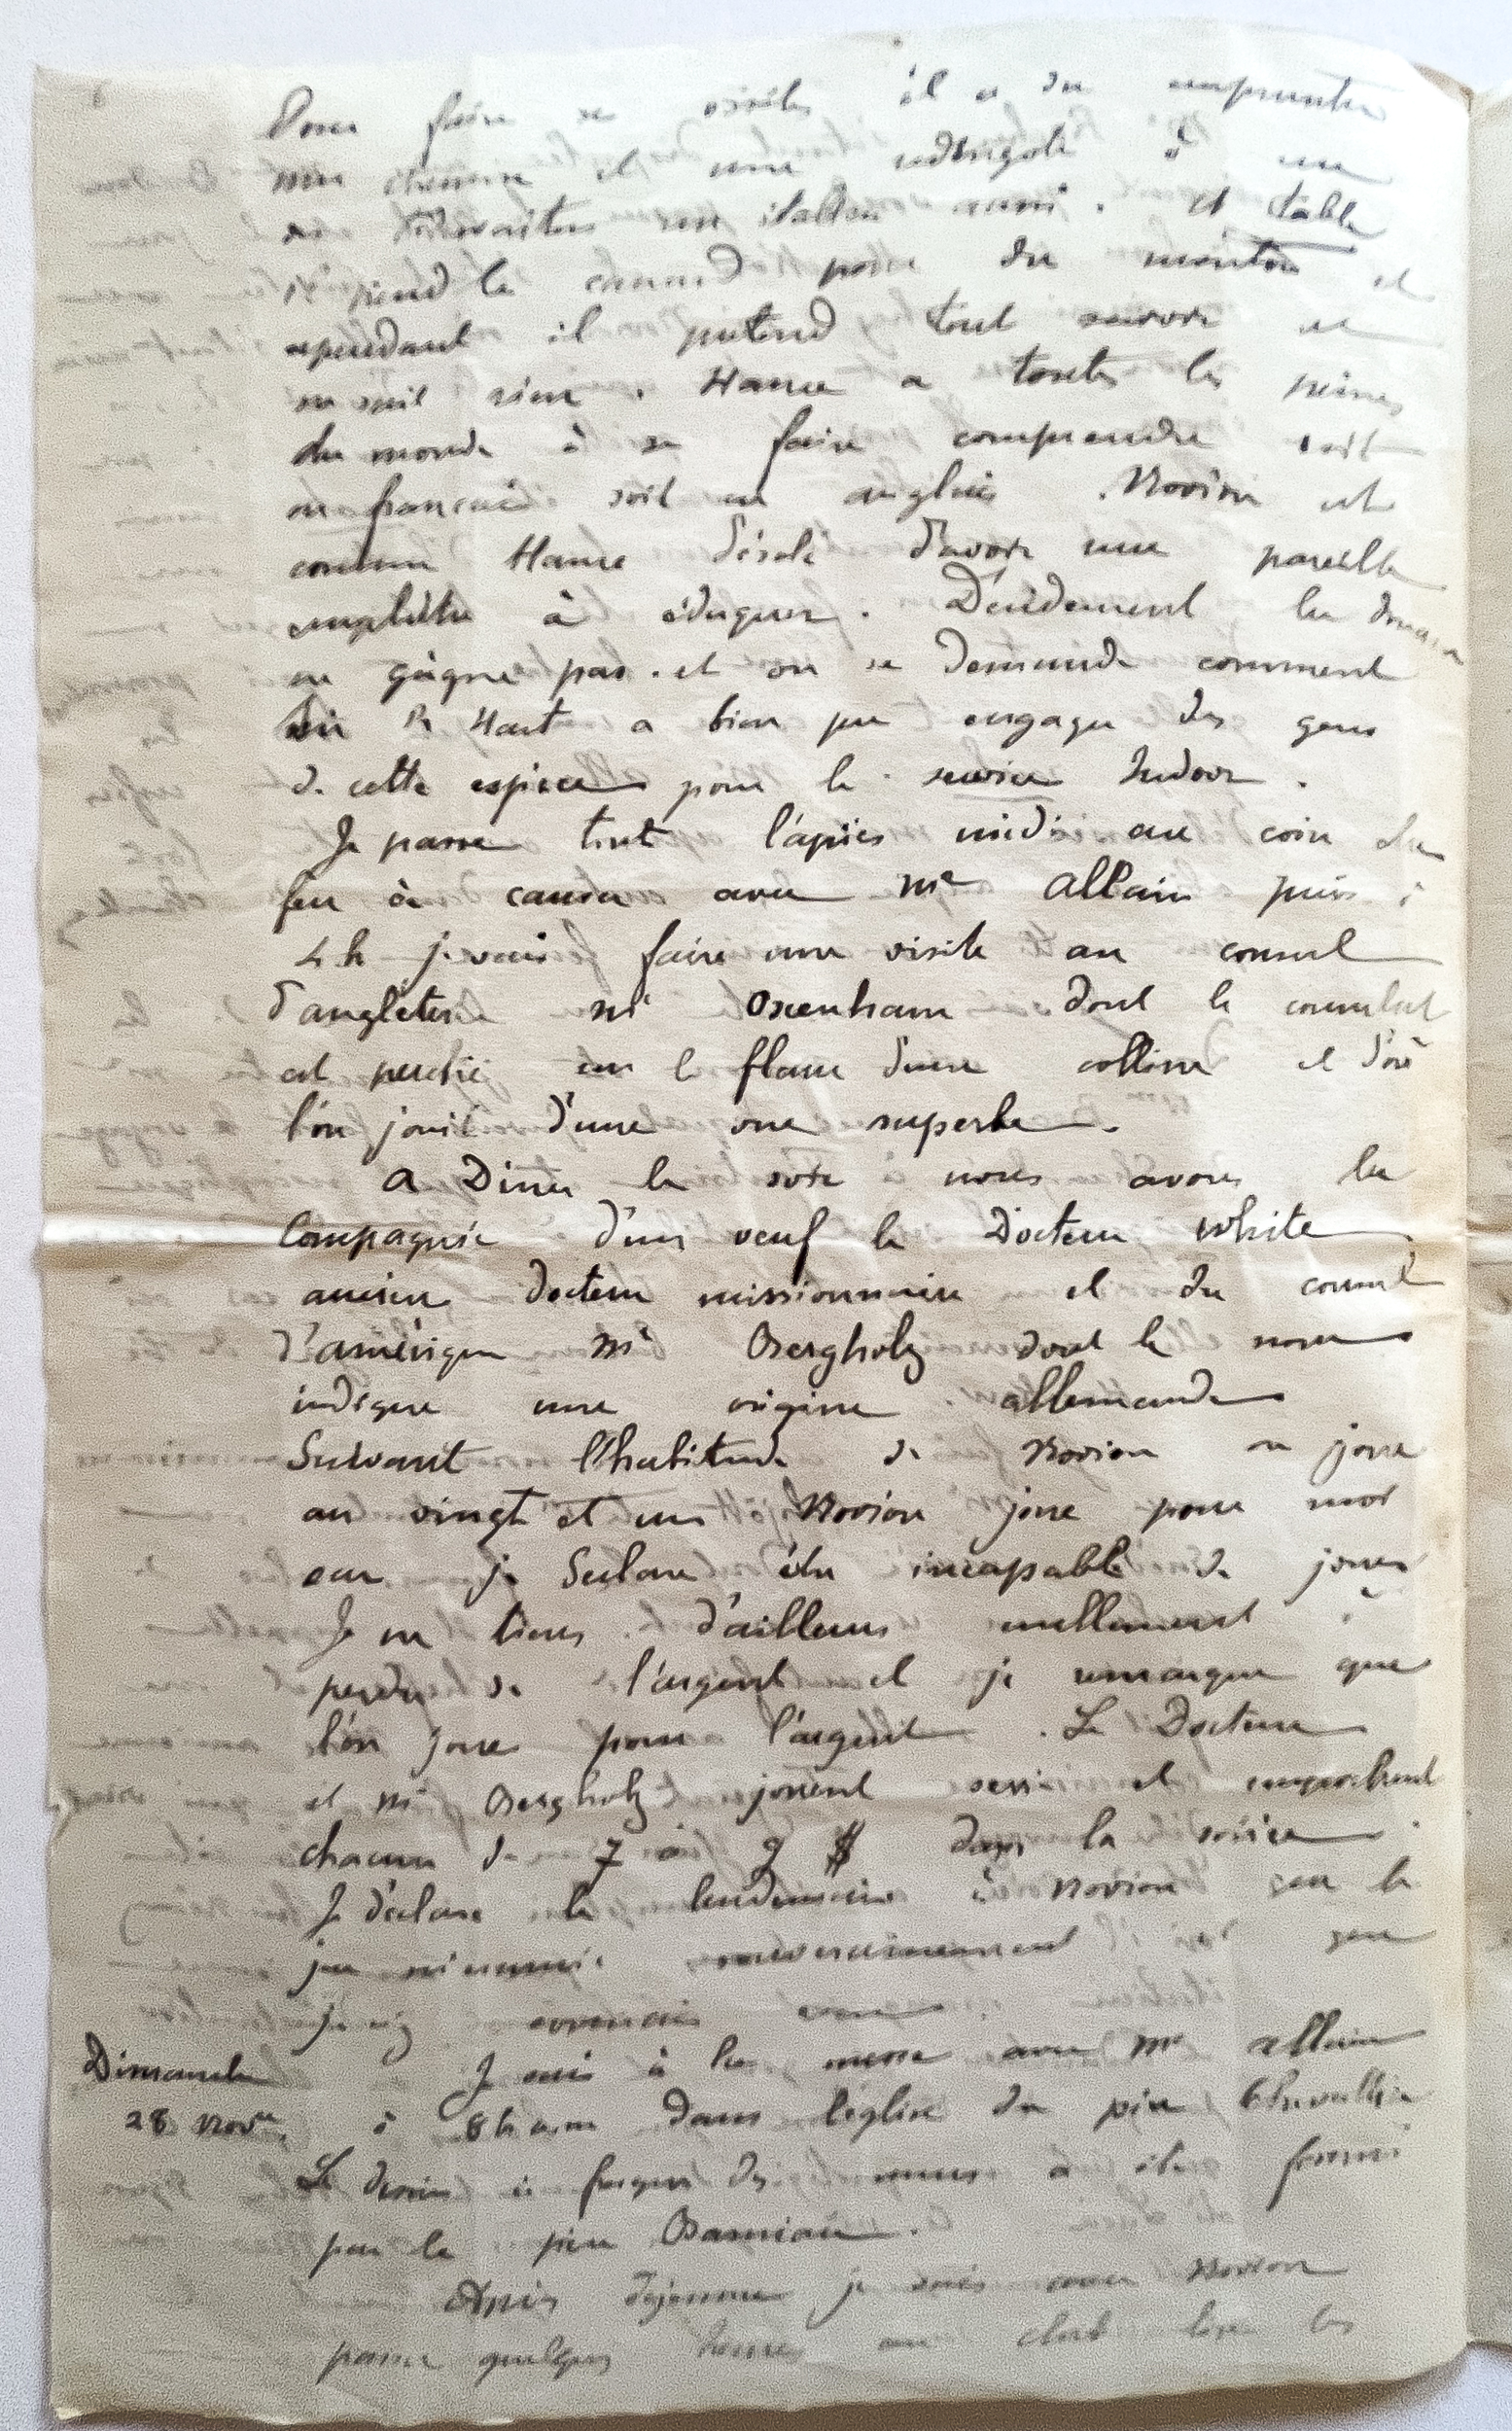 Pour faire ses visites il a du emprunter
une chemise et une redingote à un
des tidewaiters un italien aussi. et table
il prend le canard pour du mouton et
cependant il prétend tout savoir et
ne sait rien. Hance a toutes les peines
du monde à se faire comprendre soit
en français soit en anglais. Novion est
comme Hance désolé d'avoir une pareille
emplette à éduquer. Décidement la douane
ne gagne pas. et on se demande comment
Sir R Hart a bien pu engager des gens
de cette espèce pour le service Indoor.
Je passe tout l'après midi au coin du
feu à causer avec Mr Allain puis à
4 h je vais faire une visite au consul
d'angleterre Mr Oxenham dont le consulat
est perché sur le flanc d'une colline et d'où
l'on jouit d'une vue superbe.
A Diner le soir nous avons la
Compagnie d'un veuf le Docteur White
ancien docteur missionnaire et du consul
d'amérique Mr Bergholz dont le nom
indique une origine allemande
Suivant l'habitude de Novion on joue
au vingt et un Novion joue pour moi
car je déclare être incapable de jouer
Je ne tiens d'ailleurs nullement à
perdre de l'argent et je remarque que
l'on joue pour l'argent. Le Docteur
et Mr Bergholz jouent serré et empochent
chacun de 7 à 9 $ dans la soirée.
Je déclare le lendemain à Novion que le
jeu m'ennuie souverainement et que
je n'y
Dimanche
28 Novre
Je vais à la messe avec Mr Allain
à 8 h a.m dans l'église du père Chevallier
Le dessin à fresque des murs a été fourni
par le père
Après déjeuner je vais avec Novion
passer quelques heures au club lire les